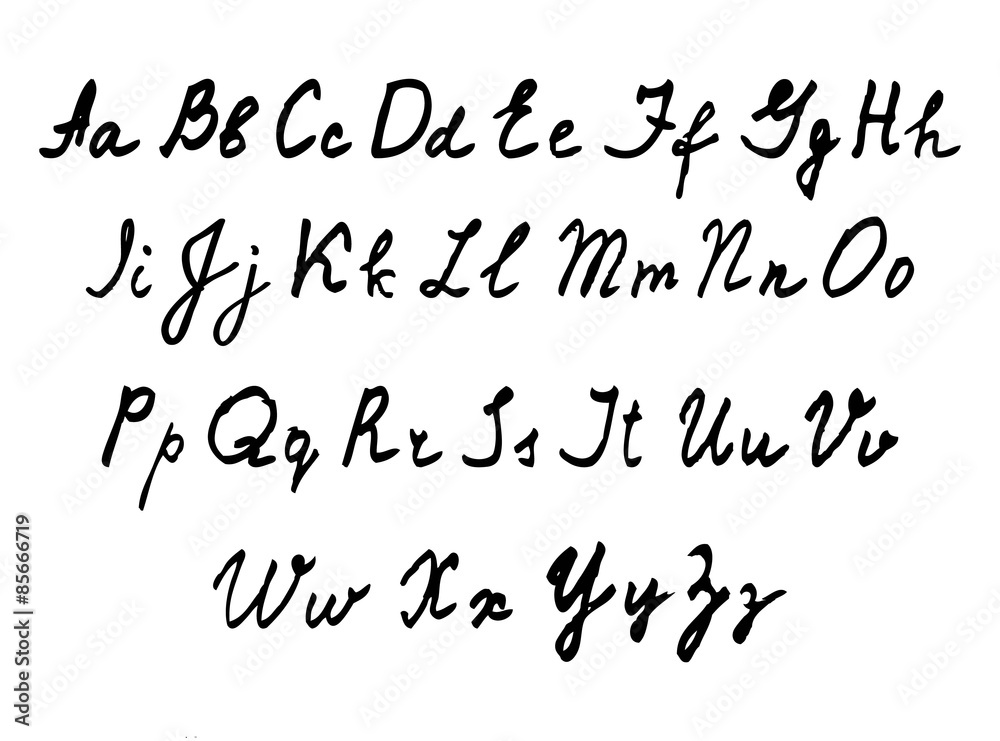 Aa Bb Cc Dd Ee Ff Gg Hh
Ii Jj Kk Ll Mm Nn Oo
Pp Qq Rr Ss Tt Uu Vv
Ww Xx Yy Zz
Adobe Stock | #85666719